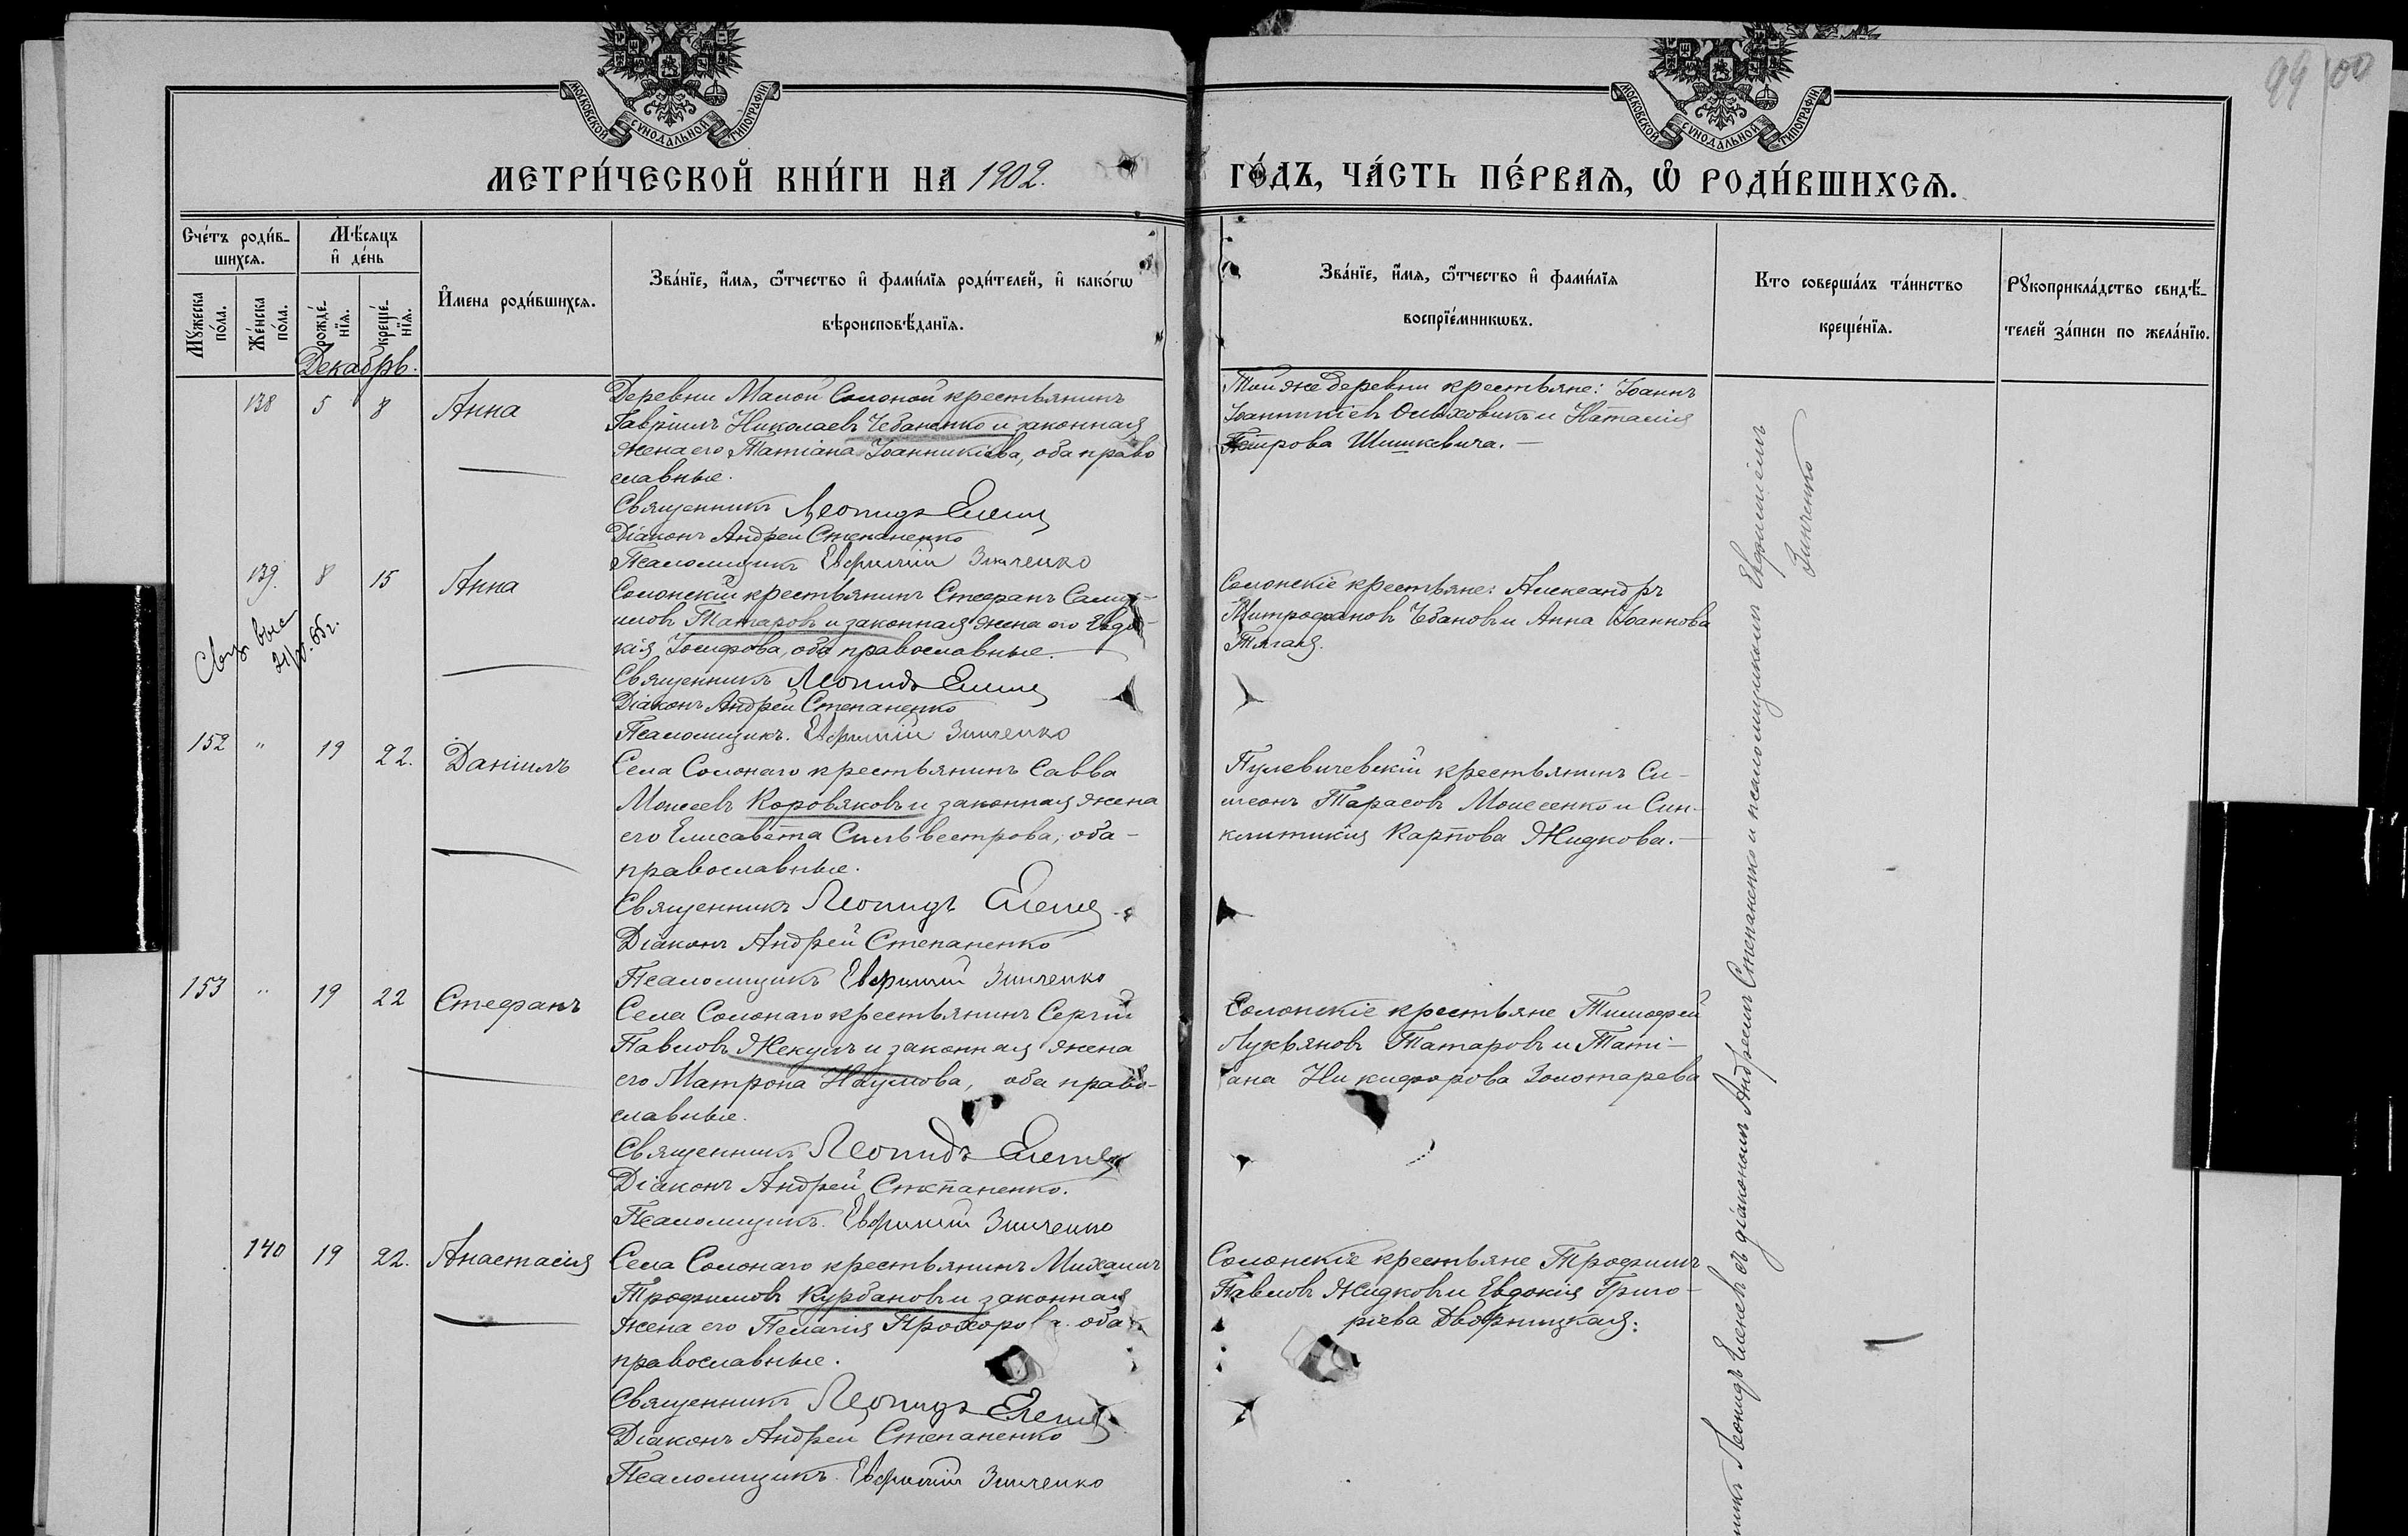 99 100
МОСКОВСКОЙ СѴНОДАЛЬНОЙ ТИПОГРАФІИ
МОСКОВСКОЙ СѴНОДАЛЬНОЙ ТИПОГРАФІИ
МЕТРИ́ЧЕСКОЙ КНИ́ГИ НА 1902.
ГО́ДЪ, ЧА́СТЬ ПЕ́РВАѦ, Ѡ҆ РОДИ́ВШИХСѦ.
Сче́тъ роди́в-
шихсѧ.
Мꙋ́жеска
по́ла.
Же́нска
по́ла.
Мѣ́сѧцъ
и҆ де́нь
рожде́-
нїѧ.
креще́-
нїѧ.
И҆мена роди́вшихсѧ.
Зва́нїе, и҆́мѧ, ѻ҆́тчество и҆ фами́лїѧ роди́телей, и҆ како́гѡ
вѣроисповѣ́данїѧ.
Зва́нїе, и҆́мѧ, ѻ҆́тчество и҆ фами́лїѧ
воспрїе́мникѡвъ.
Кто соверша́лъ та́инство
креще́нїѧ.
Рꙋкоприкла́дство свидѣ́-
телей за́писи по жела́нїю.
Декабрь.
138 5 8 Анна
Деревни Малой Солоной крестьянинъ
Гавріилъ Николаевъ Чебаненко и законная
жена его Татіана Іоанникіева, оба право
славные.
Священникъ Леонидъ Еленев
Діаконъ Андрей Степаненко
Псаломщикъ Евфимій Зинченко
Той же деревни крестьяне: Іоаннъ
Іоанникіевъ Ольховикъ и Наталія
Петрова Шишкевича.—
139. 8 15 Анна
Солонскій крестьянинъ Стефанъ Самуи-
ловъ Татаровъ и законная жена его Евдо-
кія Іосифова, оба православные.
Священникъ Леонидъ Еленев
Діаконъ Андрей Степаненко
Псаломщикъ. Евфимій Зинченко
Солонскіе крестьяне: Александръ
Митрофановъ Чбановъ и Анна Іоаннова
Тягая.
152 " 19 22. Даніилъ
Села Солонаго крестьянинъ Савва
Моисеевъ Коровяковъ и законная жена
его Елисавета Сильвестрова, оба -
православные.
Священникъ Леонидъ Еленев
Діаконъ Андрей Степаненко
Псаломщикъ Евфимій Зинченко
крестьянинъ Си-
меонъ Тарасовъ Моисеенко и Син-
клитикія Карпова Жидкова.—
153 " 19 22 Стефанъ
Села Солонаго крестьянинъ Сергій
Павловъ Жекулъ и законная жена
его Матрона Наумова, оба право-
славные.
Священникъ Леонидъ Еленев
Діаконъ Андрей Степаненко.
Псаломщикъ. Евфимій Зинченко
Солонскіе крестьяне Тимофей
Лукьяновъ Татаровъ и Таті-
ана Никифорова Золотарева
140 19 22. Анастасія
Села Солонаго крестьянинъ Михаилъ
Трофимовъ Курбановъ и законная
жена его Пелагія Прохорова оба
православные.
Священникъ Леонидъ Еленев
Діаконъ Андрей Степаненко
Псаломщикъ. Евфимій Зинченко
Солонскіе крестьяне Трофимъ
Павловъ Жидковъ и Евдокія Григо-
ріева Дворницкая.
Леонидъ Еленевъ съ діакономъ Андреемъ Степаненко и псаломщикомъ Евфиміемъ
Зинченко